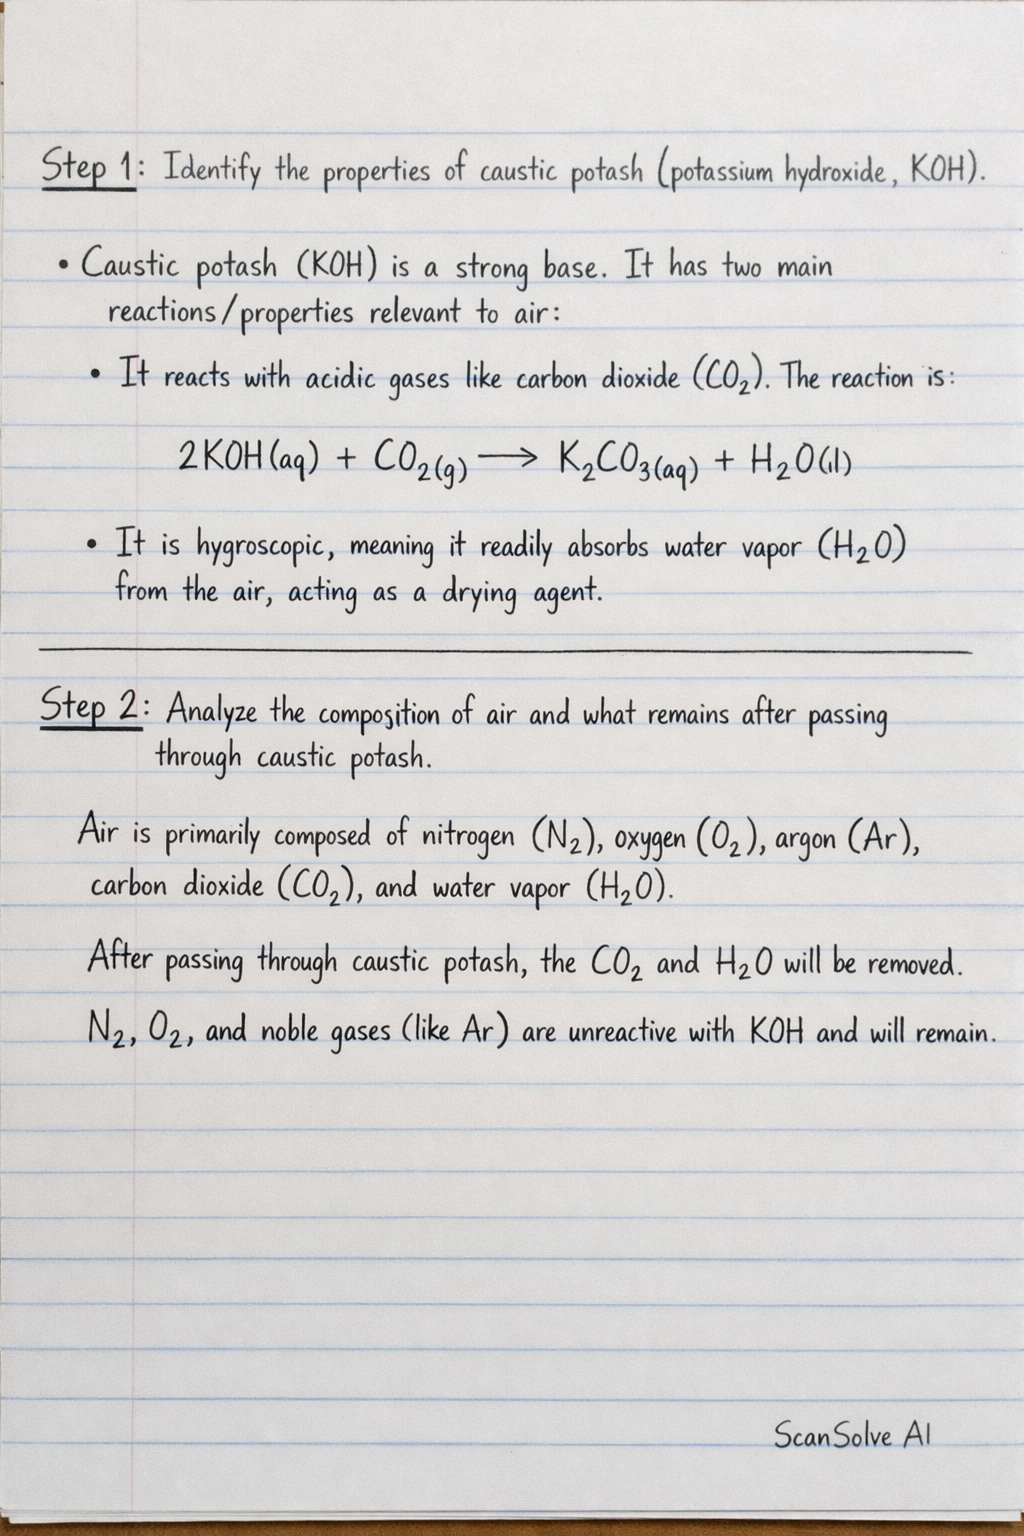 Step 1: Identify the properties of caustic potash (potassium hydroxide, KOH).
• Caustic potash (KOH) is a strong base. It has two main
reactions/properties relevant to air:
• It reacts with acidic gases like carbon dioxide (CO₂). The reaction is:
2KOH(aq) + CO₂(g) ⟶ K₂CO₃(aq) + H₂O(l)
• It is hygroscopic, meaning it readily absorbs water vapor (H₂O)
from the air, acting as a drying agent.
Step 2: Analyze the composition of air and what remains after passing
through caustic potash.
Air is primarily composed of nitrogen (N₂), oxygen (O₂), argon (Ar),
carbon dioxide (CO₂), and water vapor (H₂O).
After passing through caustic potash, the CO₂ and H₂O will be removed.
N₂, O₂, and noble gases (like Ar) are unreactive with KOH and will remain.
ScanSolve AI